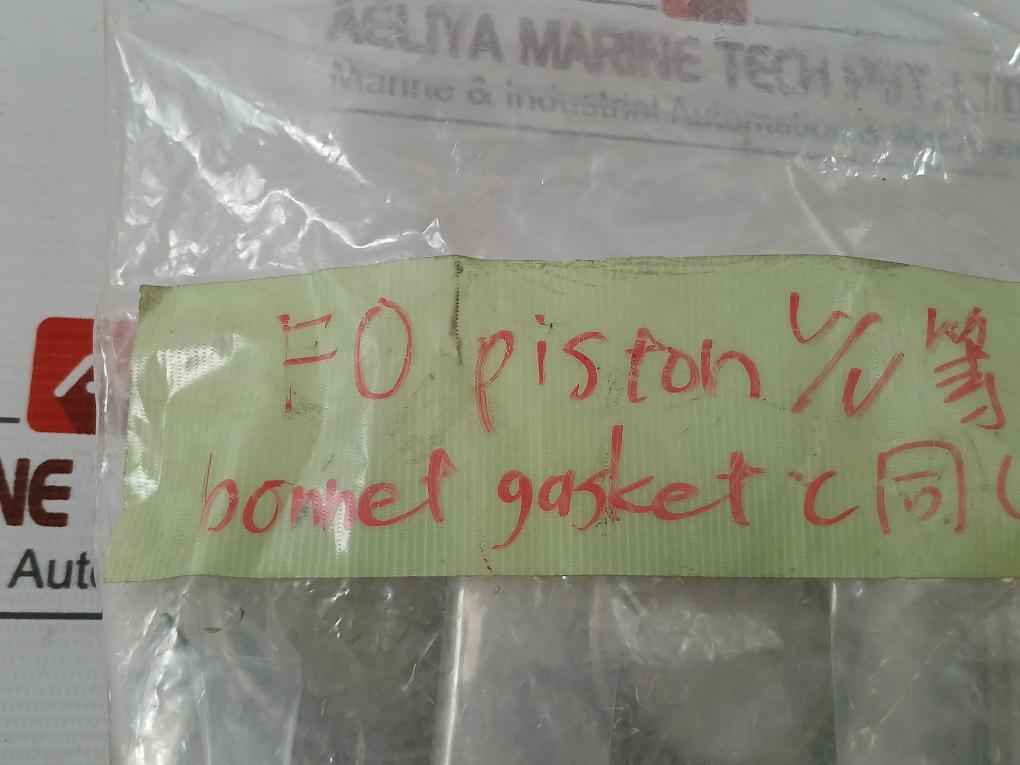 AELIYA MARINE TECH PVT. LTD
Marine & Industrial Automation &
NE
Auto
FO piston V/V 等
bonnet gasket と同し